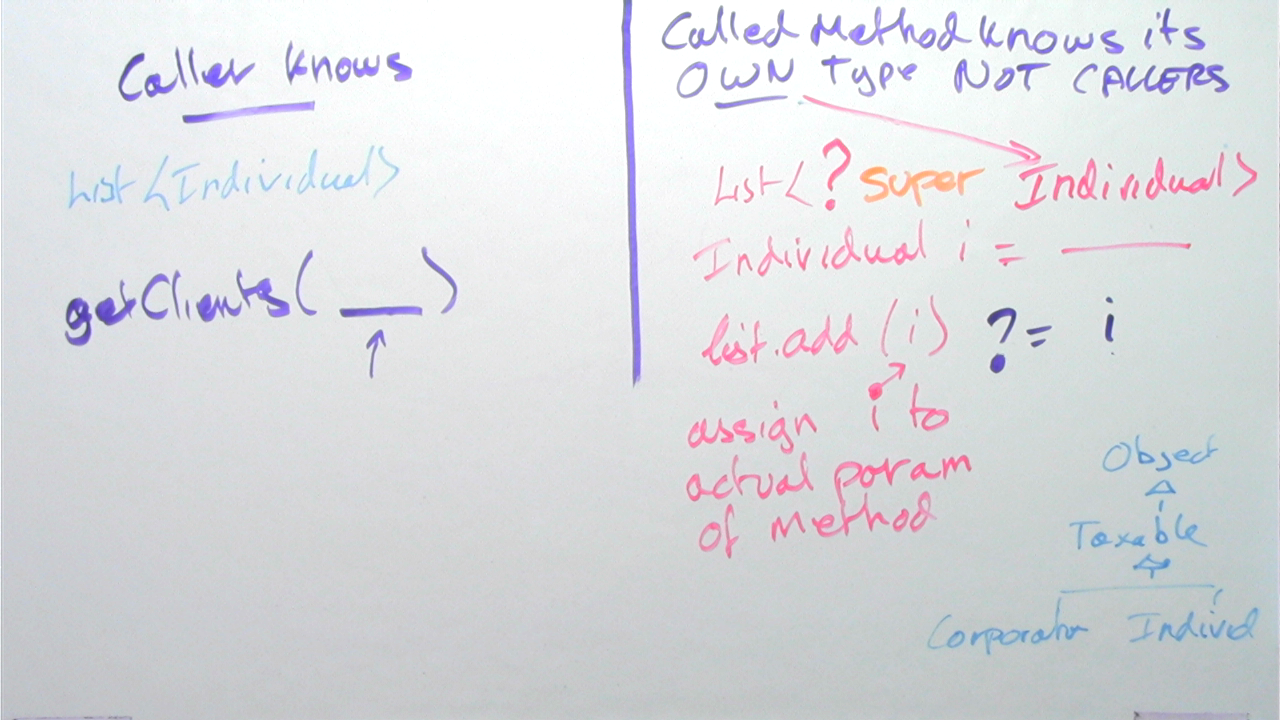 Caller knows
List<Individual>
getClients( ___ )
Called Method knows its
OWN Type NOT CALLERS
List<? super Individual>
Individual i = ___
list.add (i) ? = i
assign i to
actual param
of Method
Object
Taxable
Individ